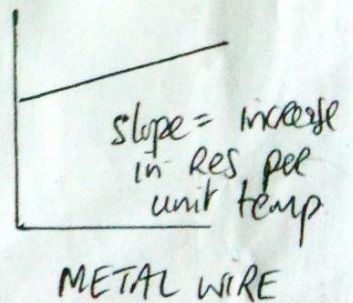 slope = increase
in Res per
unit temp
METAL WIRE